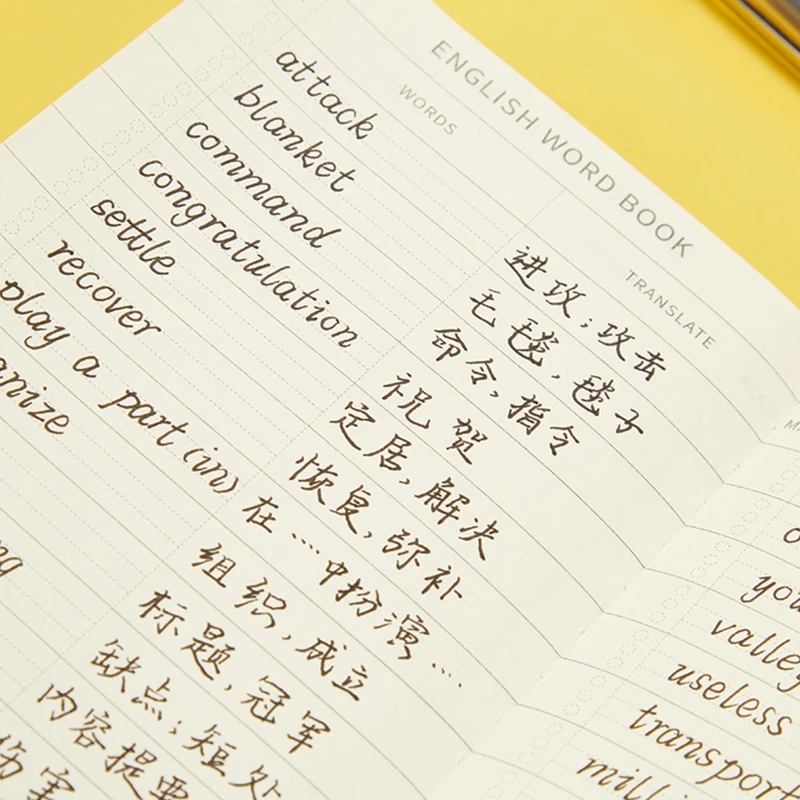 ENGLISH WORD BOOK
WORDS
TRANSLATE
attack
进攻;攻击
blanket
毛毯,毯子
command
命令,指令
congratulation
祝贺
settle
定居,解决
recover
恢复,弥补
play a part (in)
在…中扮演…
组织,成立
标题,冠军
缺点;短处
内容提要
伤害
valley
useless
transport